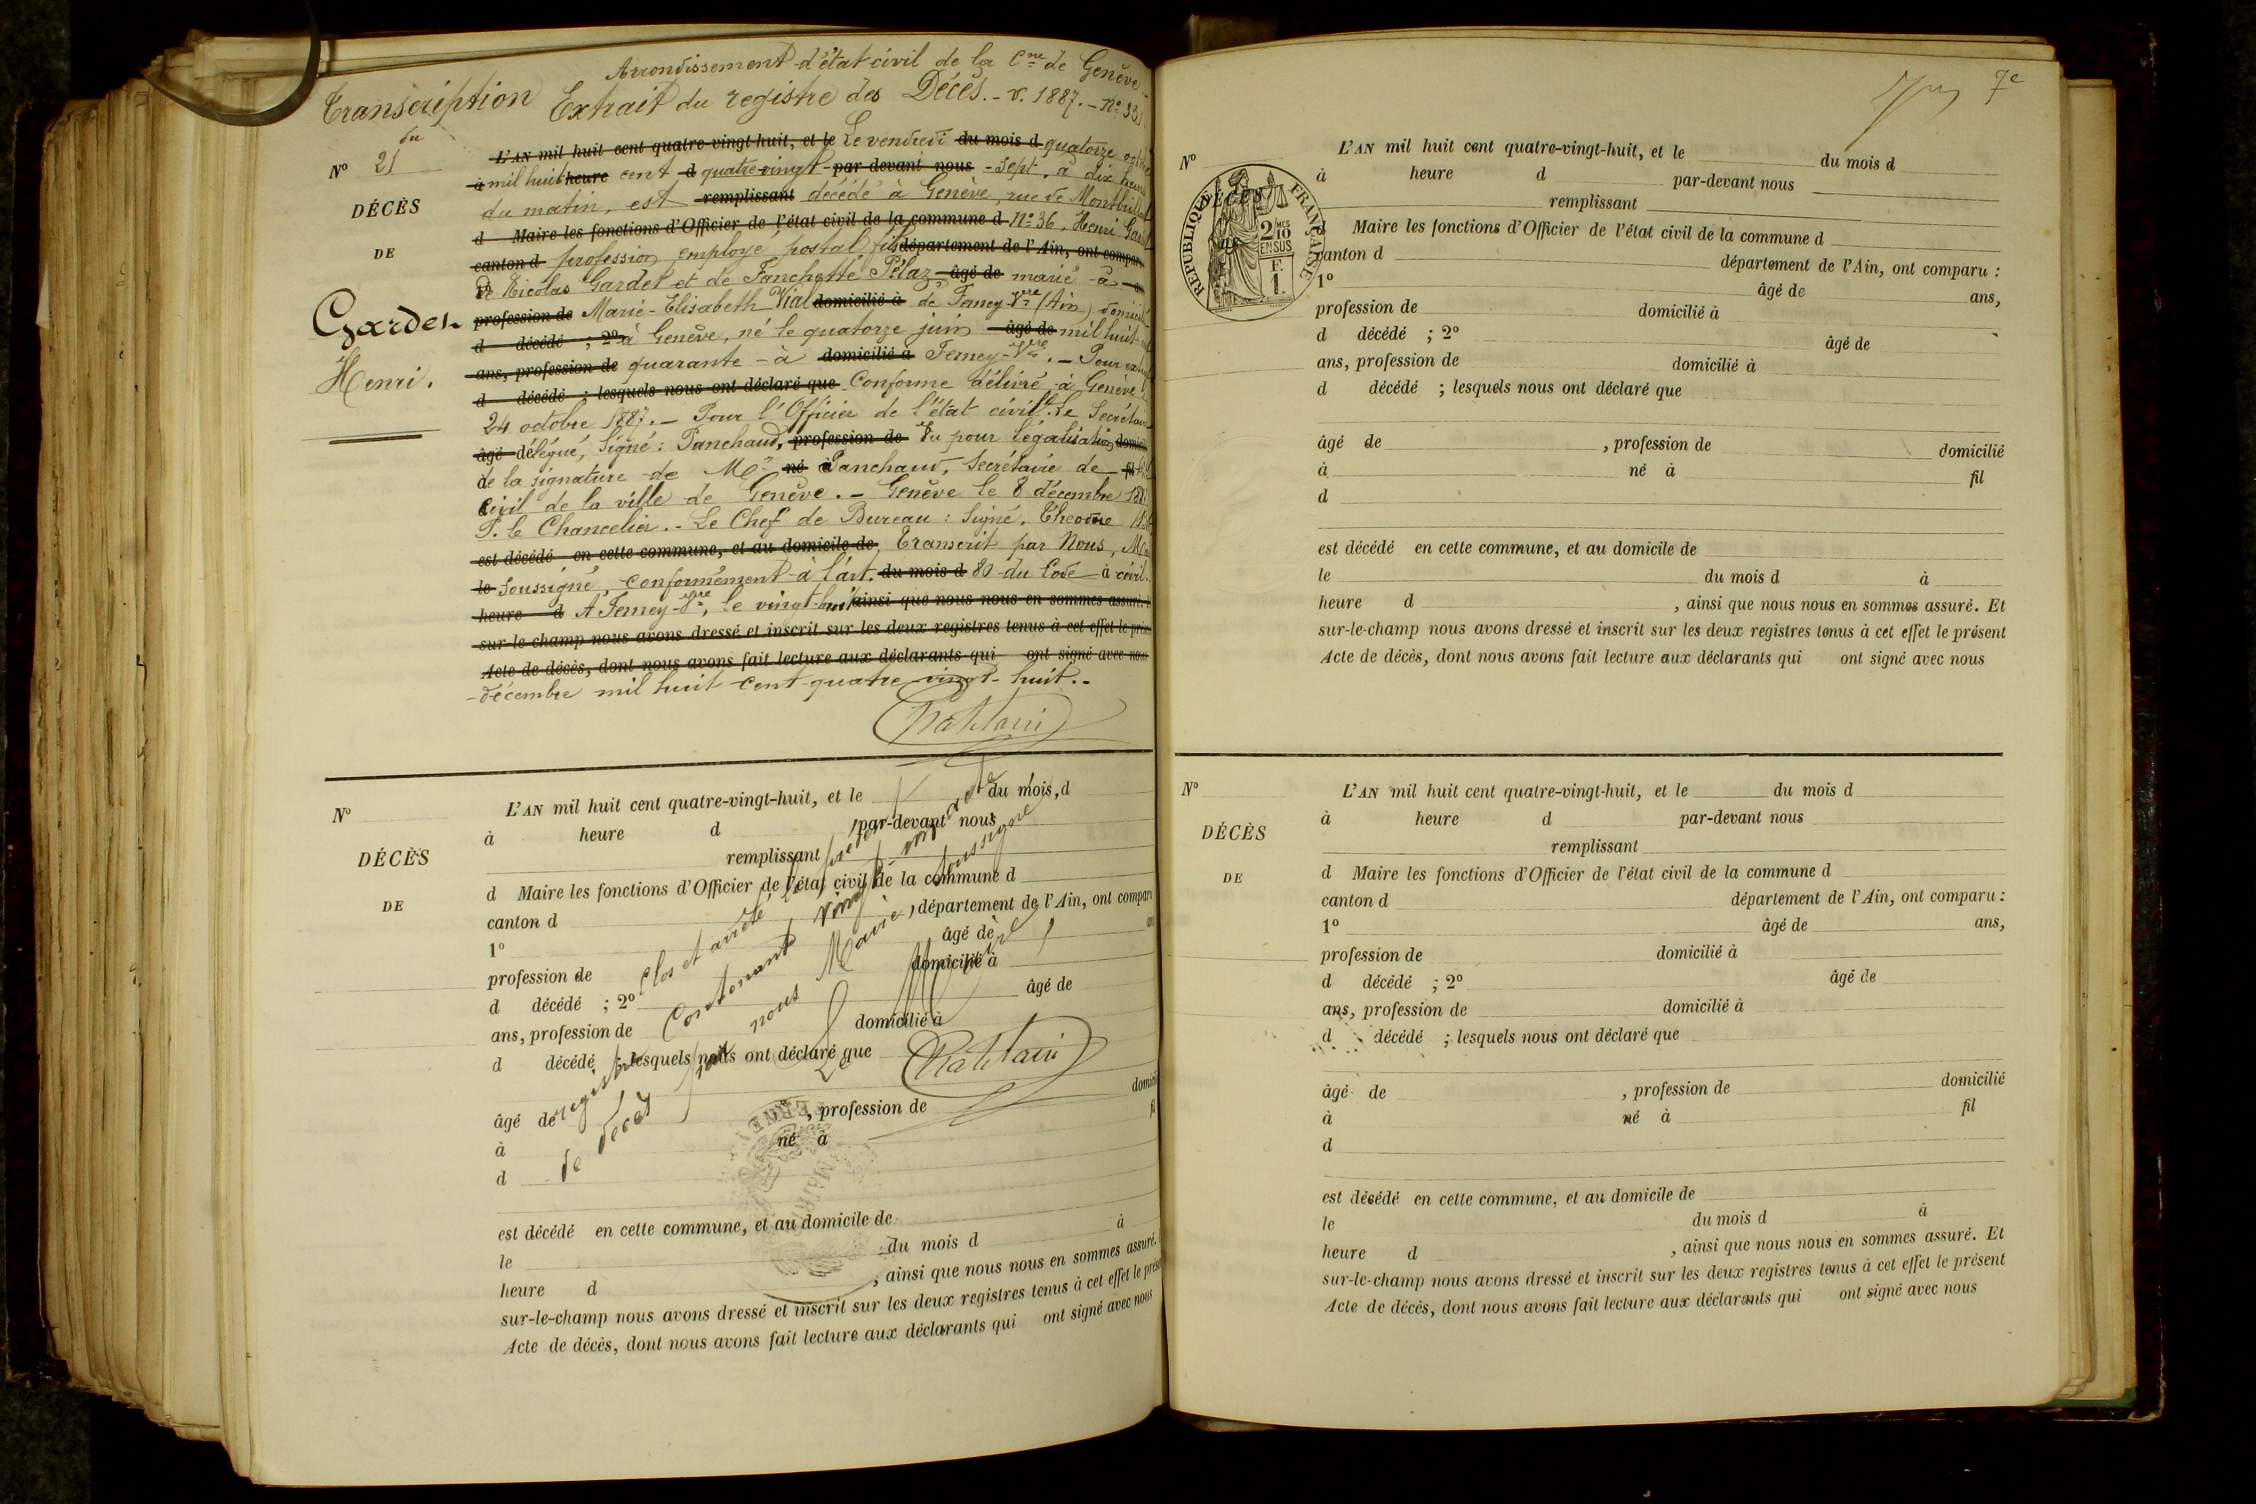 Arrondissement d'état civil de la Cne de Genève.
Transcription du Extrait du registre des Décès. - v. 1887. - No 33
No 21
DÉCÈS
DE
Gardet
Henri.
L'AN mil huit cent quatre-vingt-huit, et le Le vendredi du mois d quatorze
à mil huit heure cent d quatre-vingt par-devant nous - sept, à dix heures
du matin, est remplissant décédé à Genève, rue de Montbrillant
d Maire les fonctions d'Officier de l'état civil de la commune d No 36, Henri
canton d profession employé postal fils département de l'Ain, ont comparu
De Nicolas Gardet et de Fanchette Pélaz âgé de marié à
profession de Marie-Elisabeth Vial domicilié à de Ferney-Vre (Ain) domicilié
d décédé ; 2o à Genève, né le quatorze juin âgé de mil huit
ans, profession de quarante - à domicilié à Ferney-Vre. - Pour
d décédé ; lesquels nous ont déclaré que Conforme délivré à Genève
24 octobre 1887. - Pour l'Officier de l'état civil. Le Secrétaire
âgé délégué, Signé : Panchaud, profession de Vu pour légalisation
de la signature de Mr né à Panchaud, Secrétaire de
civil de la ville de Genève. - Genève le 8 décembre
P. le Chancelier. - Le Chef de Bureau : Signé.
est décédé en cette commune, et au domicile de Transcrit par Nous,
le Soussigné, conformément à l'art. du mois d 80 du Code à civil.
heure d A Ferney-Vre, le vingt-huit ainsi que nous nous en sommes assuré.
sur-le-champ nous avons dressé et inscrit sur les deux registres tenus à cet effet le
Acte de décès, dont nous avons fait lecture aux déclarants qui ont signé avec nous
décembre mil huit cent quatre-vingt-huit.
No
DÉCÈS
DE
L'AN mil huit cent quatre-vingt-huit, et le du mois d
à heure d par-devant nous
remplissant
d Maire les fonctions d'Officier de l'état civil de la commune d
canton d département de l'Ain, ont
1o âgé de
profession de domicilié à
d décédé ; 2o âgé de
ans, profession de domicilié à
d décédé ; lesquels nous ont déclaré que
âgé de , profession de
à né à
d
est décédé en cette commune, et au domicile de
le du mois d à
heure d , ainsi que nous nous en sommes assuré.
sur-le-champ nous avons dressé et inscrit sur les deux registres tenus à cet effet le
Acte de décès, dont nous avons fait lecture aux déclarants qui ont signé avec nous
Clos et arrêté le présent registre
Contenant vingt un actes de décès
par nous Maire soussigné
Le Maire,
MAIRIE
7e
No
DÉCÈS
RÉPUBLIQUE FRANÇAISE
2/10
EN SUS
F.
1.
L'AN mil huit cent quatre-vingt-huit, et le du mois d
à heure d par-devant nous
remplissant
Maire les fonctions d'Officier de l'état civil de la commune d
canton d département de l'Ain, ont comparu :
1o âgé de ans,
profession de domicilié à
d décédé ; 2o âgé de
ans, profession de domicilié à
d décédé ; lesquels nous ont déclaré que
âgé de , profession de domicilié
à né à fil
d
est décédé en cette commune, et au domicile de
le du mois d à
heure d , ainsi que nous nous en sommes assuré. Et
sur-le-champ nous avons dressé et inscrit sur les deux registres tenus à cet effet le présent
Acte de décès, dont nous avons fait lecture aux déclarants qui ont signé avec nous
No
DÉCÈS
DE
L'AN mil huit cent quatre-vingt-huit, et le du mois d
à heure d par-devant nous
remplissant
d Maire les fonctions d'Officier de l'état civil de la commune d
canton d département de l'Ain, ont comparu :
1o âgé de ans,
profession de domicilié à
d décédé ; 2o âgé de
ans, profession de domicilié à
d décédé ; lesquels nous ont déclaré que
âgé de , profession de domicilié
à né à fil
d
est décédé en cette commune, et au domicile de
le du mois d à
heure d , ainsi que nous nous en sommes assuré. Et
sur-le-champ nous avons dressé et inscrit sur les deux registres tenus à cet effet le présent
Acte de décès, dont nous avons fait lecture aux déclarants qui ont signé avec nous